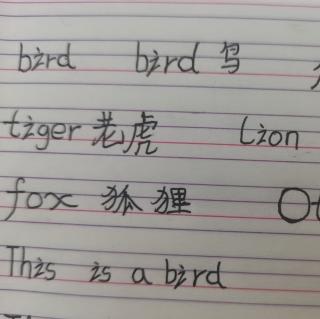 bird bird 鸟
tiger 老虎 lion
fox 狐狸
This is a bird